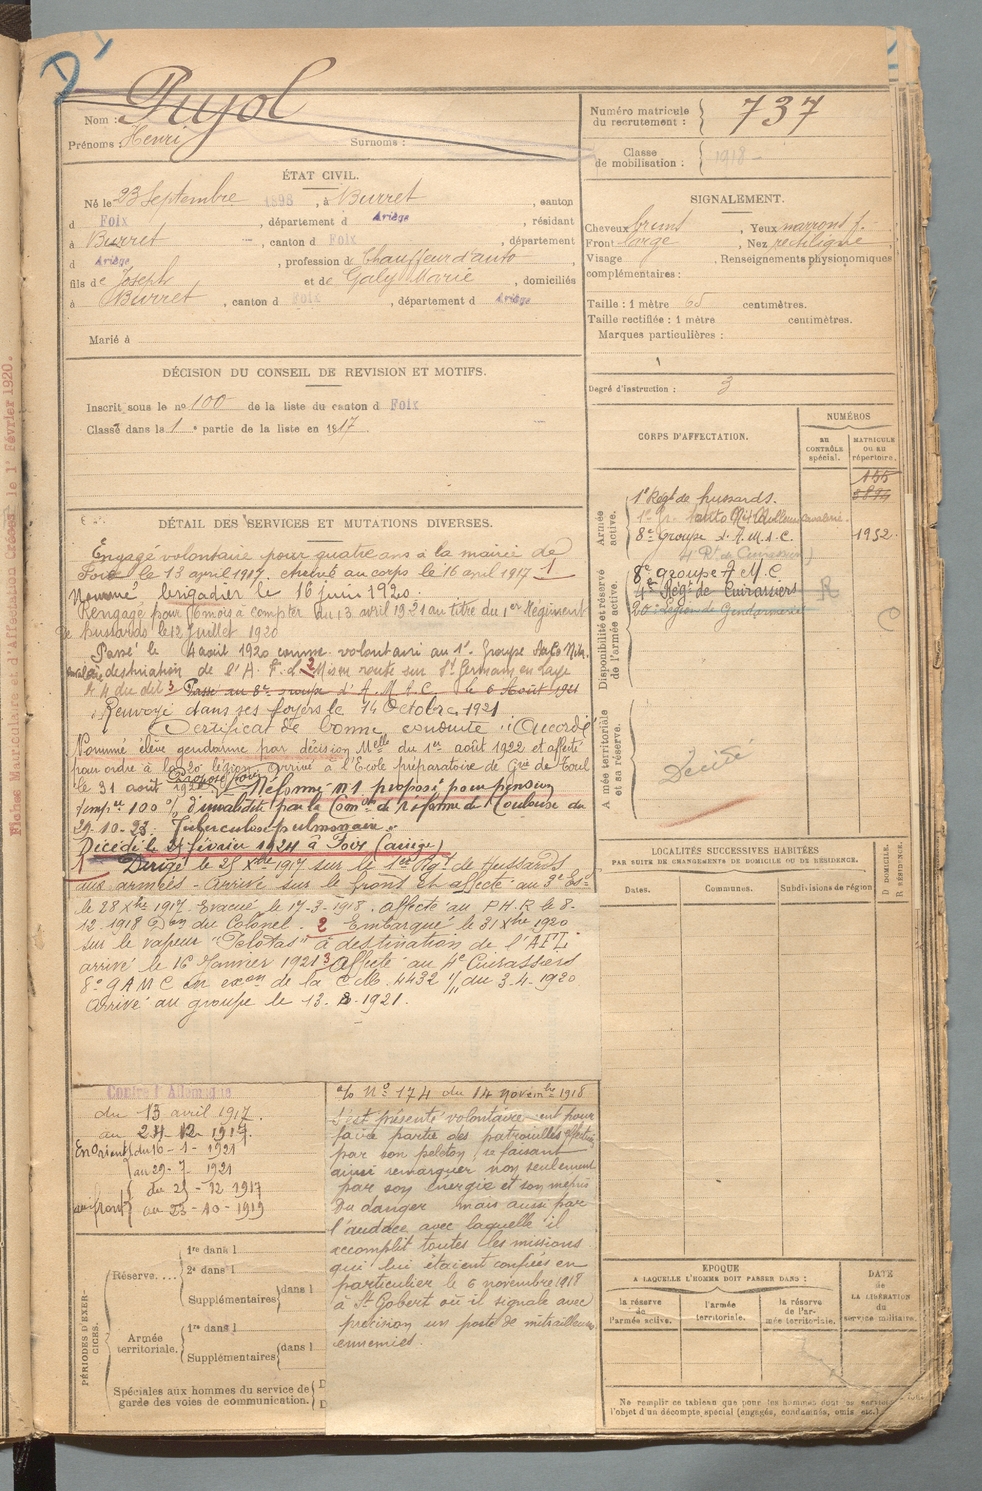 D
Pujol
Nom :
Prénoms : Henri Surnoms :
Numéro matricule du recrutement : 737
Classe de mobilisation : 1918
ÉTAT CIVIL.
Né le 23 Septembre 1898, à Burret, canton
d Foix, département d Ariège, résidant
à Burret, canton d Foix, département
d Ariège, profession de Chauffeur d'auto
fils de Joseph et de Galy Marie, domiciliés
à Burret, canton d Foix, département d Ariège
Marié à
SIGNALEMENT.
Cheveux bruns, Yeux marrons f.
Front large, Nez rectiligne,
Visage , Renseignements physionomiques
complémentaires :
Taille : 1 mètre 65 centimètres.
Taille rectifiée : 1 mètre centimètres.
Marques particulières :
Degré d'instruction : 3
DÉCISION DU CONSEIL DE REVISION ET MOTIFS.
Inscrit sous le n° 100 de la liste du canton d Foix
Classé dans la 1e partie de la liste en 1917.
CORPS D'AFFECTATION.
NUMÉROS
AU CONTRÔLE spécial.
MATRICULE OU AU répertoire.
Armée active.
155
1er Régt de hussards.
8e groupe d'A.M.C. 1952
4e Rt de Cuirassiers
Disponibilité et réserve de l'armée active.
8e groupe A M C
4e Régt de Cuirassiers R
20e Légion de Gendarmerie
C
Armée territoriale et sa réserve.
Décédé
Fiches Matriculaire et d'Affectation Créées le 1er Février 1920.
DÉTAIL DES SERVICES ET MUTATIONS DIVERSES.
Engagé volontaire pour quatre ans à la mairie de
Foix le 13 avril 1917. Arrivé au corps le 16 avril 1917 1
Nommé brigadier le 16 juin 1920.
Rengagé pour 6 mois à compter du 13 avril 1921 au titre du 1er Régiment
de hussards le 12 Juillet 1920
Passé le 4 août 1920 comme volontaire au 1er Groupe
destination de l'A. F. L 2 Mis en route sur St Germain en Laye
le 4 du dit 3 Passé au 8e groupe d'A.M.C. le 6 Août 1921
Renvoyé dans ses foyers le 14 Octobre 1921
Certificat de bonne conduite : "Accordé"
Nommé élève gendarme par décision Melle du 1er août 1922 et affecté
pour ordre à la 20e légion. Arrivé à l'Ecole préparatoire de Gie de Toul
le 31 août 1922. Réformé n°1 proposé pour pension
temp re 100 % d'invalidité par la Comon de réforme de Toulouse du
29-10-23. Tuberculose pulmonaire.
Décédé le février 1924 à Foix (Ariège)
1 Dirigé le 25 Xbre 1917 sur le 1er Régt de Hussards
aux armées - Arrivé sur le front et affecté au 3e Esc
le 28 Xbre 1917 Evacué le 17-3-1918. Affecté au P.H.R le 8-
12-1918 Don du Colonel. 2 Embarqué le 31 Xbre 1920
sur le vapeur "Pelotas" à destination de l'AFL
arrivé le 16 Janvier 1921 3 Affecté au 4e Cuirassiers
8e GAMC en exon de la C.M. 4432 1/11 du 3-4-1920
Arrivé au groupe le 13. 8.1921.
LOCALITÉS SUCCESSIVES HABITÉES
PAR SUITE DE CHANGEMENTS DE DOMICILE OU DE RÉSIDENCE.
Dates. Communes. Subdivisions de région
D DOMICILE. R RÉSIDENCE.
Contre l'Allemagne
du 13 avril 1917.
au 24 12 1917.
En Orient du 16-1-1921
au 29-7 1921
au front du 25-12 1917
au 23-10-1919
o/o N° 174 du 14 novembre 1918
s'est présenté volontairement pour
faire partie des patrouilles effectuées
par son peloton, se faisant
ainsi remarquer non seulement
par son énergie et son mépris
du danger mais aussi par
l'audace avec laquelle il
accomplit toutes les missions
qui lui étaient confiées en
particulier le 6 novembre 1918
à St Gobert où il signale avec
précision un poste de mitrailleuses
ennemies.
PÉRIODES D'EXERCICES.
Réserve.... 1re dans l
2e dans l
Supplémentaires dans l
Armée territoriale. 1re dans l
Supplémentaires dans l
Spéciales aux hommes du service de garde des voies de communication.
EPOQUE
A LAQUELLE L'HOMME DOIT PASSER DANS :
la réserve de l'armée active. l'armée territoriale. la réserve de l'armée territoriale.
DATE de LA LIBÉRATION du service militaire.
Ne remplir ce tableau que pour les hommes dont le service
l'objet d'un décompte spécial (engagés, condamnés, omis, etc.)